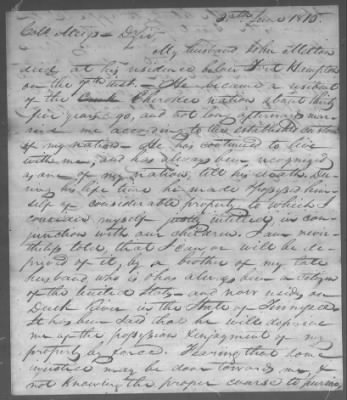 20th June 1815.
Coll. Meigs - D Sir
My husband John Melton
died at his residence below Fort Hampton
on the 7th Inst. - He became a resident
of the Creek Cherokee nation about thirty
five years ago, and not long afterwards mar-
ried me according to the established custom
of my nation - He has continued to live
with me, and has always been recognized
as one of my nation, till his death. Du-
ring his life time he made possessed him-
self of considerable property, to which I
conceive myself justly entitled, in con-
junction with our children. I am never-
theless told, that I can or will be de-
prived of it, by a brother of my late
husband who is & has always been a citizen
of the United States - and now resides on
Duck River in the State of Tennessee
It has been said that he will deprive
me of the possession & enjoyment of my
property by force. Fearing that some
injustice may be done towards me, &
not knowing the proper course to pursue